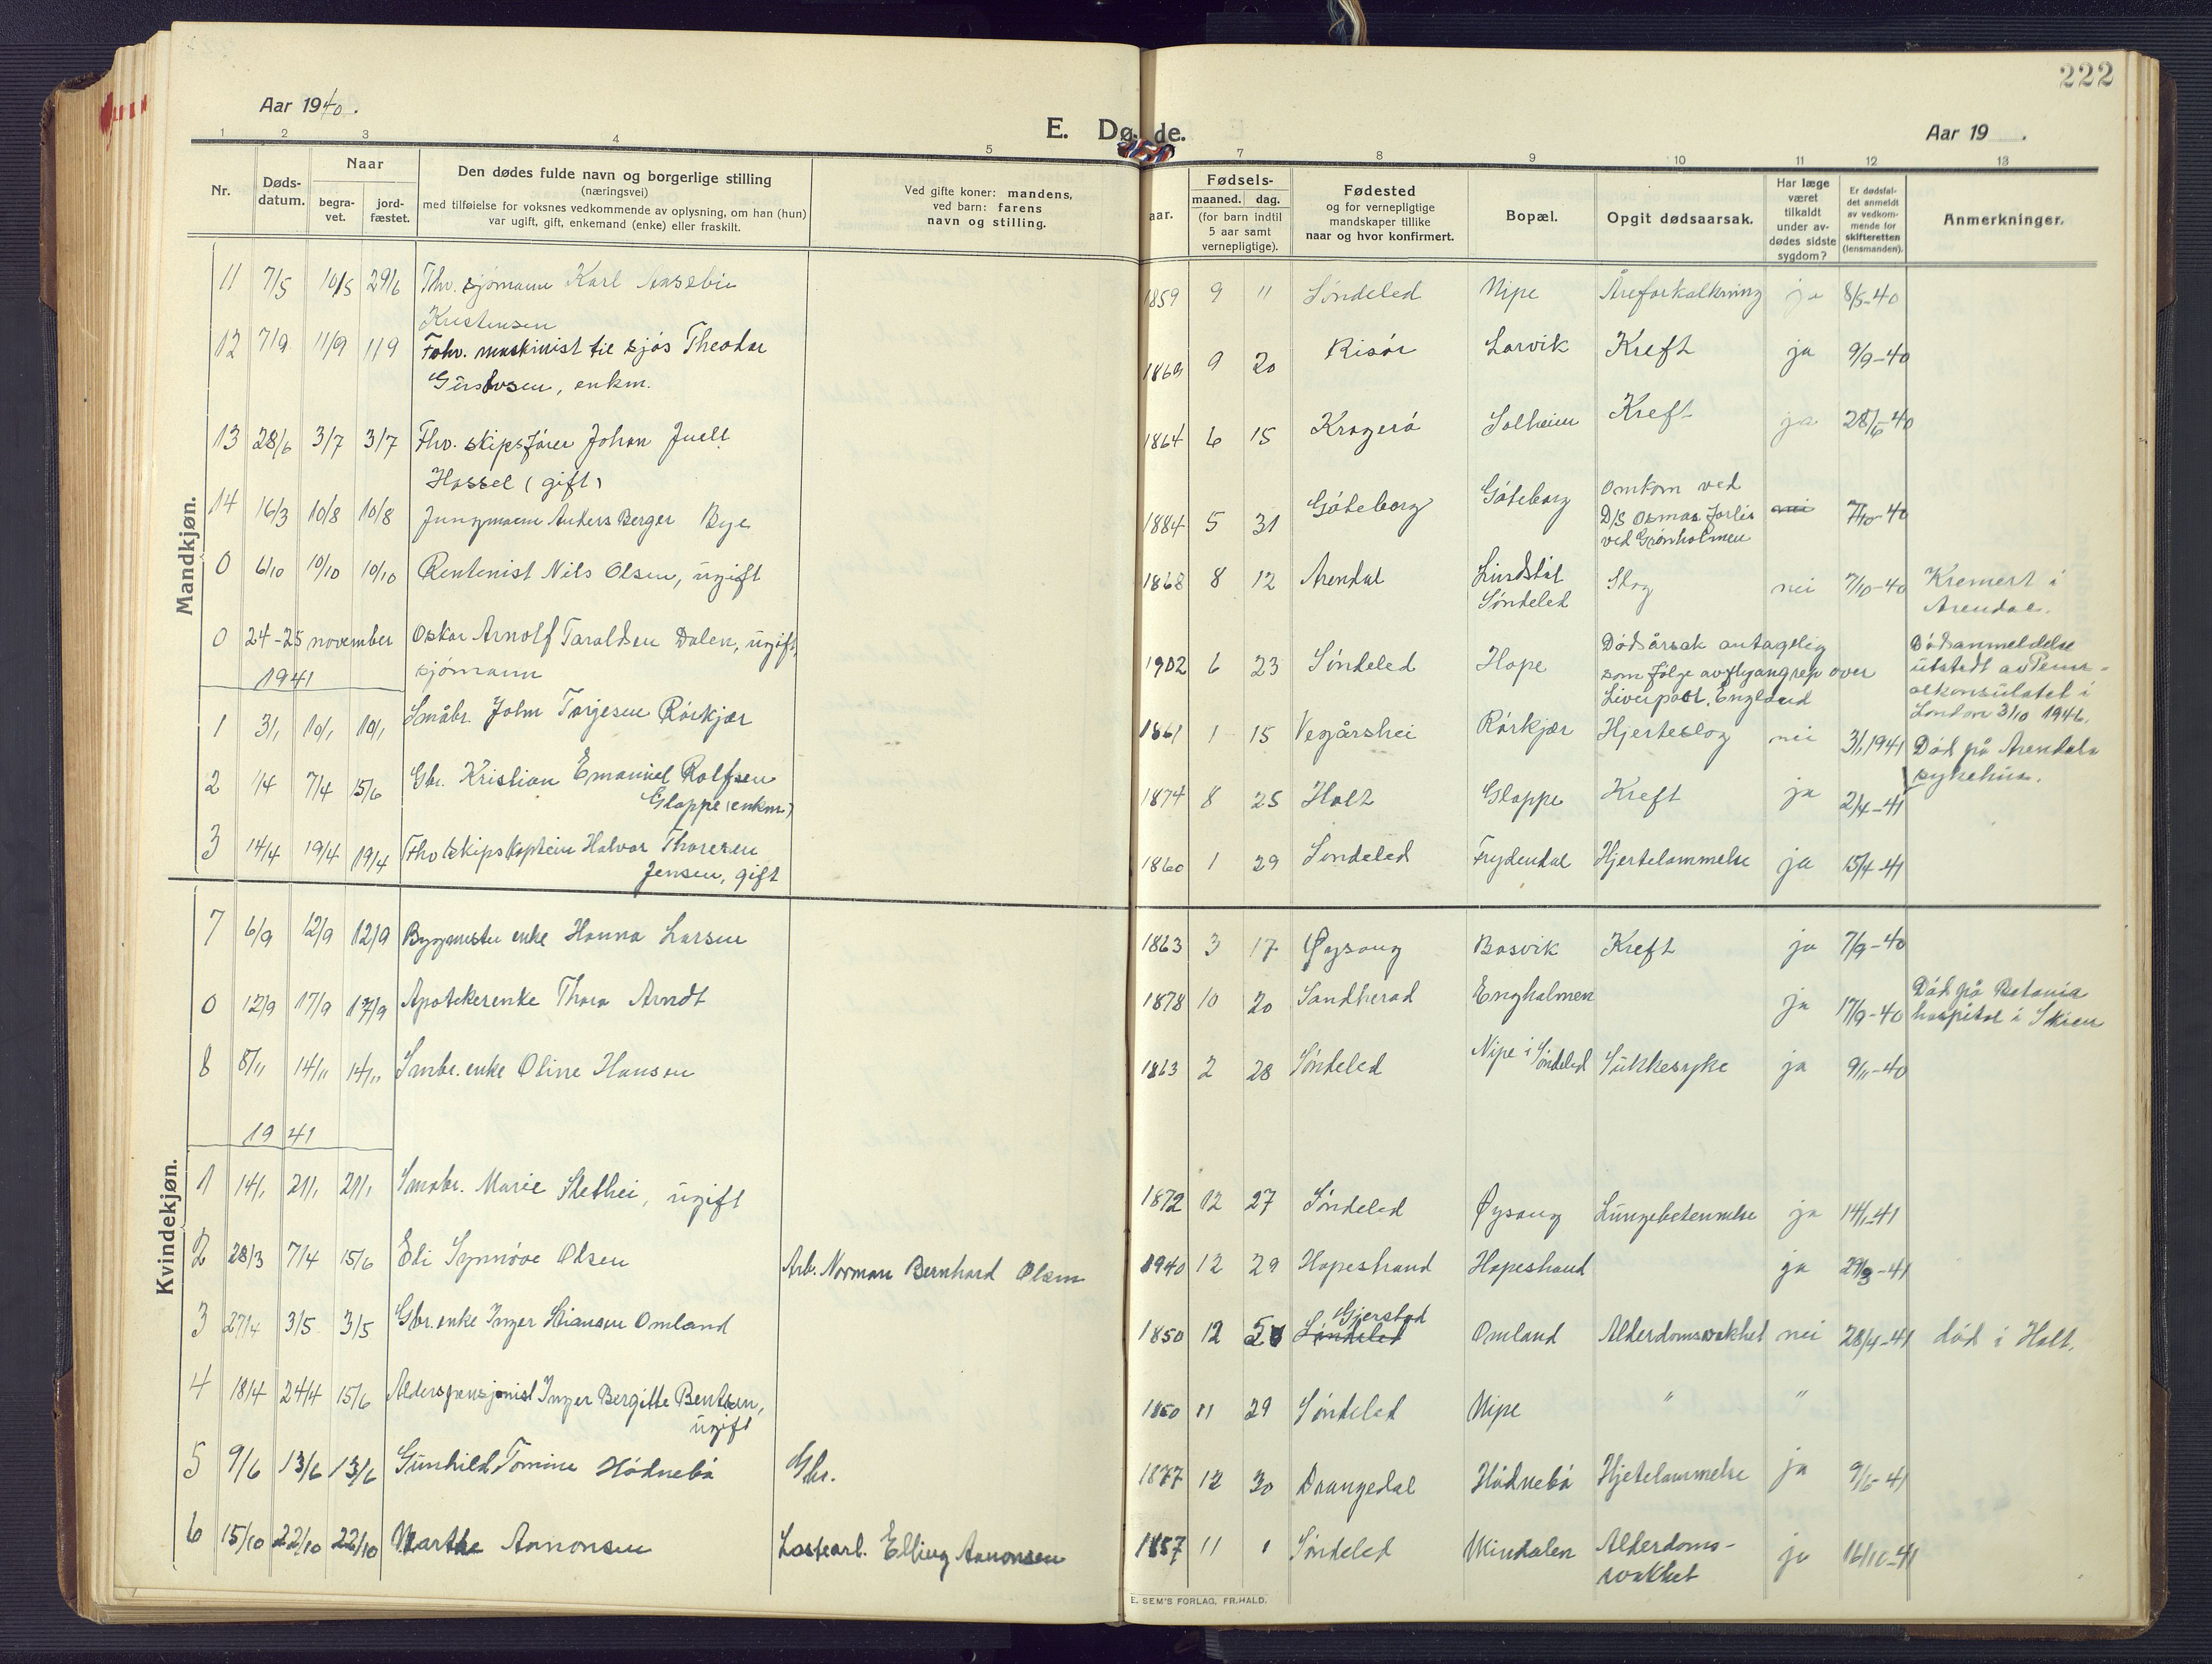 222
Aar 1940.
E. Døde.
Aar 19 .
1 2 3 4 5 7 8 9 10 11 12 13
Nr.
Døds-
datum.
Naar
begra-
vet.
jord-
fæstet.
Den dødes fulde navn og borgerlige stilling
(næringsvei)
med tilføielse for voksnes vedkommende av oplysning, om han (hun)
var ugift, gift, enkemand (enke) eller fraskilt.
Ved gifte koner: mandens,
ved barn: farens
navn og stilling.
aar.
Fødsels-
maaned. dag.
(for barn indtil
5 aar samt
vernepligtige).
Fødested
og for vernepligtige
mandskaper tillike
naar og hvor konfirmert.
Bopæl.
Opgit dødsaarsak.
Har læge
været
tilkaldt
under av-
dødes sidste
sygdom?
Er dødsfal-
det anmeldt
av vedkom-
mende for
skifteretten
(lensmanden).
Anmerkninger.
Mandkjøn.
11 7/5 10/5 29/6 Fhv. sjömann Karl Aasebie 1859 9 11 Söndeled Nipe Åreforkalkning ja 8/5-40
Kristensen
12 7/9 11/9 11/9 Fohv. maskinist til sjös Theodor 1869 9 20 Risör Larvik Kreft ja 9/9-40
Gustavsen, enkm.
13 28/6 3/7 3/7 Fhv. skipsförer Johan Juell 1864 6 15 Kragerö Solheim Kreft ja 28/6-40
Hassel (gift)
14 16/3 10/8 10/8 Jungmann Anders Berger Bye 1884 5 31 Göteborg Göteborg Omkom ved nei 7/10-40
D/S Osmas forlis
ved Grönholmen
0 6/10 10/10 10/10 Rentenist Nils Olsen, ugift 1868 8 12 Arendal Lindstöl Slag nei 7/10-40 Kremert i
Söndeled Arendal.
0 24-25 november Oskar Arnolf Taraldsen Dalen, ugift, 1902 6 23 Söndeled Hope Dödsårsak antagelig Dödsanmeldelse
sjömann som fölge av flyangrep over utstedt av
Liverpool, England alkonsulatet i
London 3/10 1946.
1941
1 3/1 10/1 10/1 Småbr. John Torjesen Rörkjær 1861 1 15 Vegårshei Rörkjær Hjerteslag nei 3/1 1941
2 1/4 7/4 15/6 Gbr. Kristian Emanuel Rolfsen 1874 8 25 Holt Gloppe Kreft ja 2/4-41 Död på Arendals
Gloppe (enkm.) sykehus.
3 14/4 19/4 19/4 Fhv skipskaptein Halvor Thoresen 1860 1 29 Söndeled Frydendal Hjertelammelse ja 15/4-41
Jensen, gift
Kvindekjøn.
7 6/9 12/9 12/9 Byggmester enke Hanna Larsen 1863 3 17 Øysang Bosvik Kreft ja 7/9-40
0 12/9 17/9 17/9 Apotekerenke Thora Arndt 1878 10 20 Sandherad Engholmen ja 17/9-40 Död på Betania
hospital i Skien
8 8/11 14/11 14/11 Smbr. enke Oline Hansen 1863 2 28 Söndeled Nipe i Söndeled Sukkesyke ja 9/11-40
1941
1 14/1 21/1 21/1 Småbr. Marie Slethei, ugift 1872 12 27 Söndeled Øysang Lungebetennelse ja 14/1-41
2 28/3 7/4 15/6 Eli Synnöve Olsen Arb. Norman Bernhard Olsen 1940 12 29 Hopestrand Hopestrand ja 29/3-41
3 27/4 3/5 3/5 Gbr. enke Inger Stiansen Omland 1850 12 5 Söndeled Gjerstad Omland Alderdomssvakhet nei 28/4-41 död i Holt.
4 18/4 24/4 15/6 Alderspensjonist Inger Bergitte Bentsen, 1850 11 29 Söndeled Nipe " "
ugift
5 9/6 13/6 13/6 Gunhild Tomine Hödnebö Gbr. 1877 12 30 Drangedal Hödnebö Hjertelammelse ja 9/6-41
6 15/10 22/10 22/10 Marthe Aanonsen Lastearb. Elling Aanonsen 1857 11 1 Söndeled Mindalen Alderdoms- ja 16/10-41
svakhet
E. SEM'S FORLAG, FR.HALD.